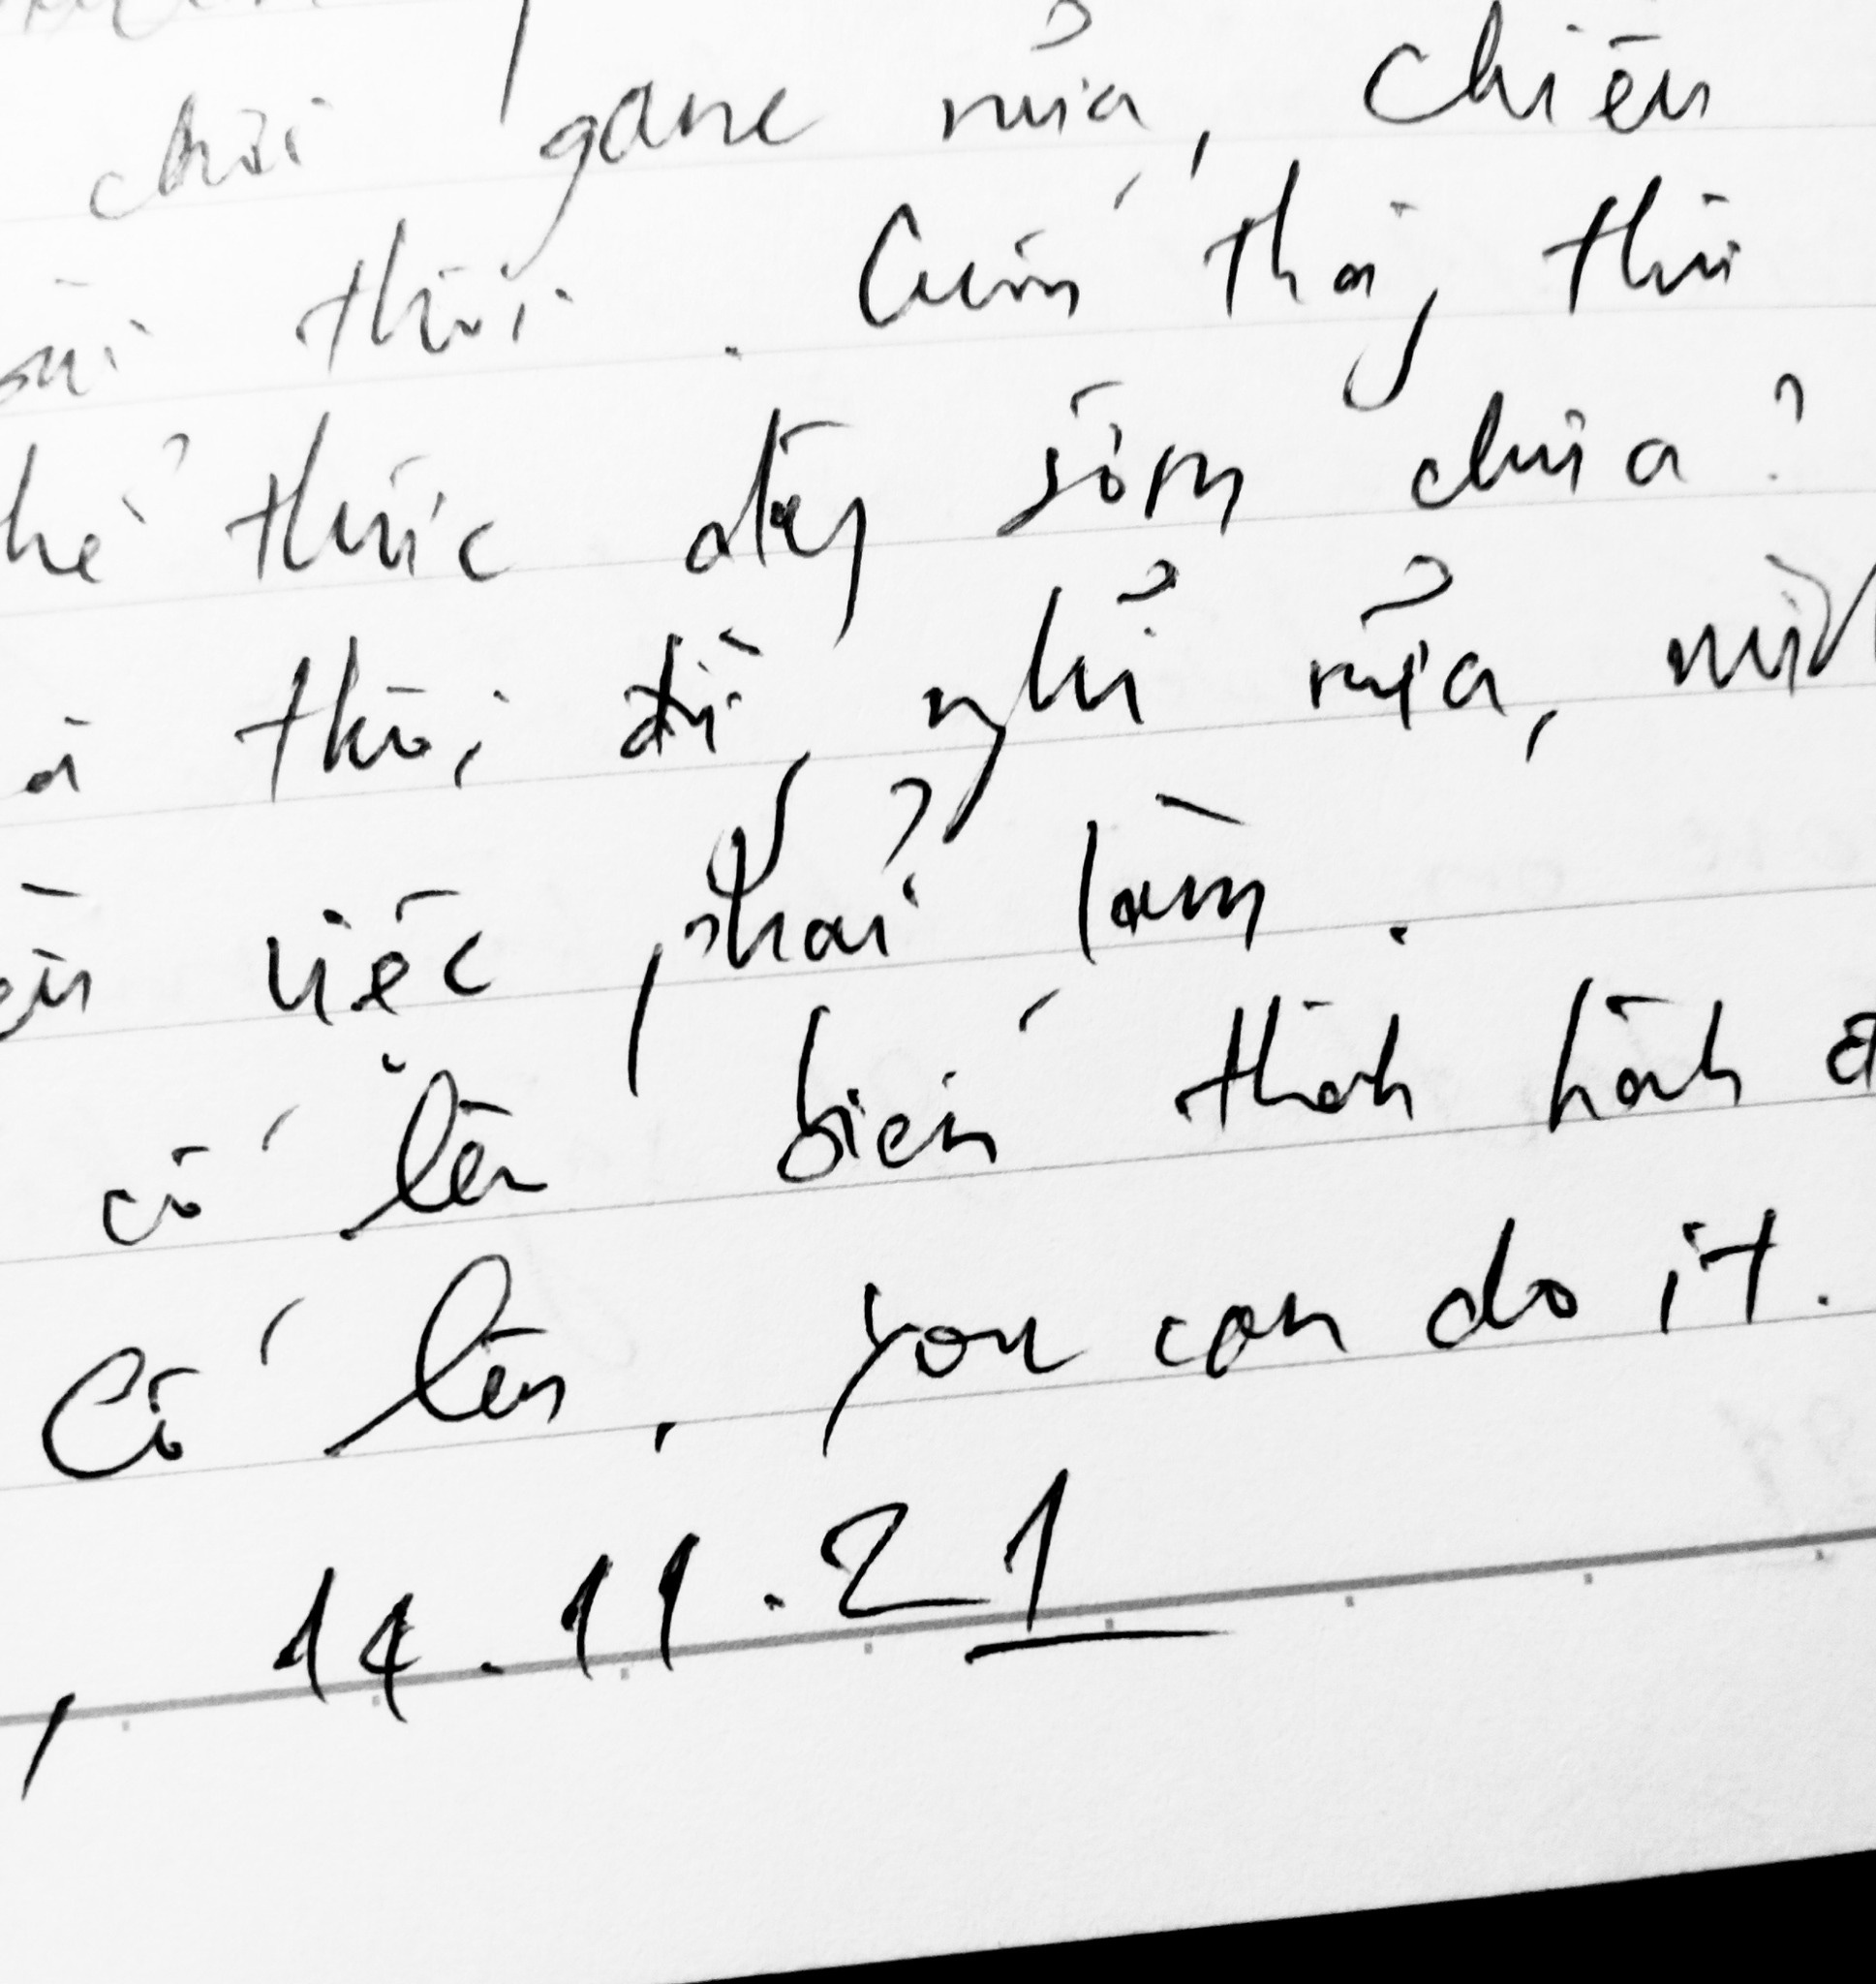 chơi game nửa, chiến
thôi. Cuối tháng thì
thức dậy sớm chưa?
thôi đừng nghỉ nửa, mình
việc phải làm.
cố lên biến thành hành
Cố lên, you can do it.
, 14.11.21